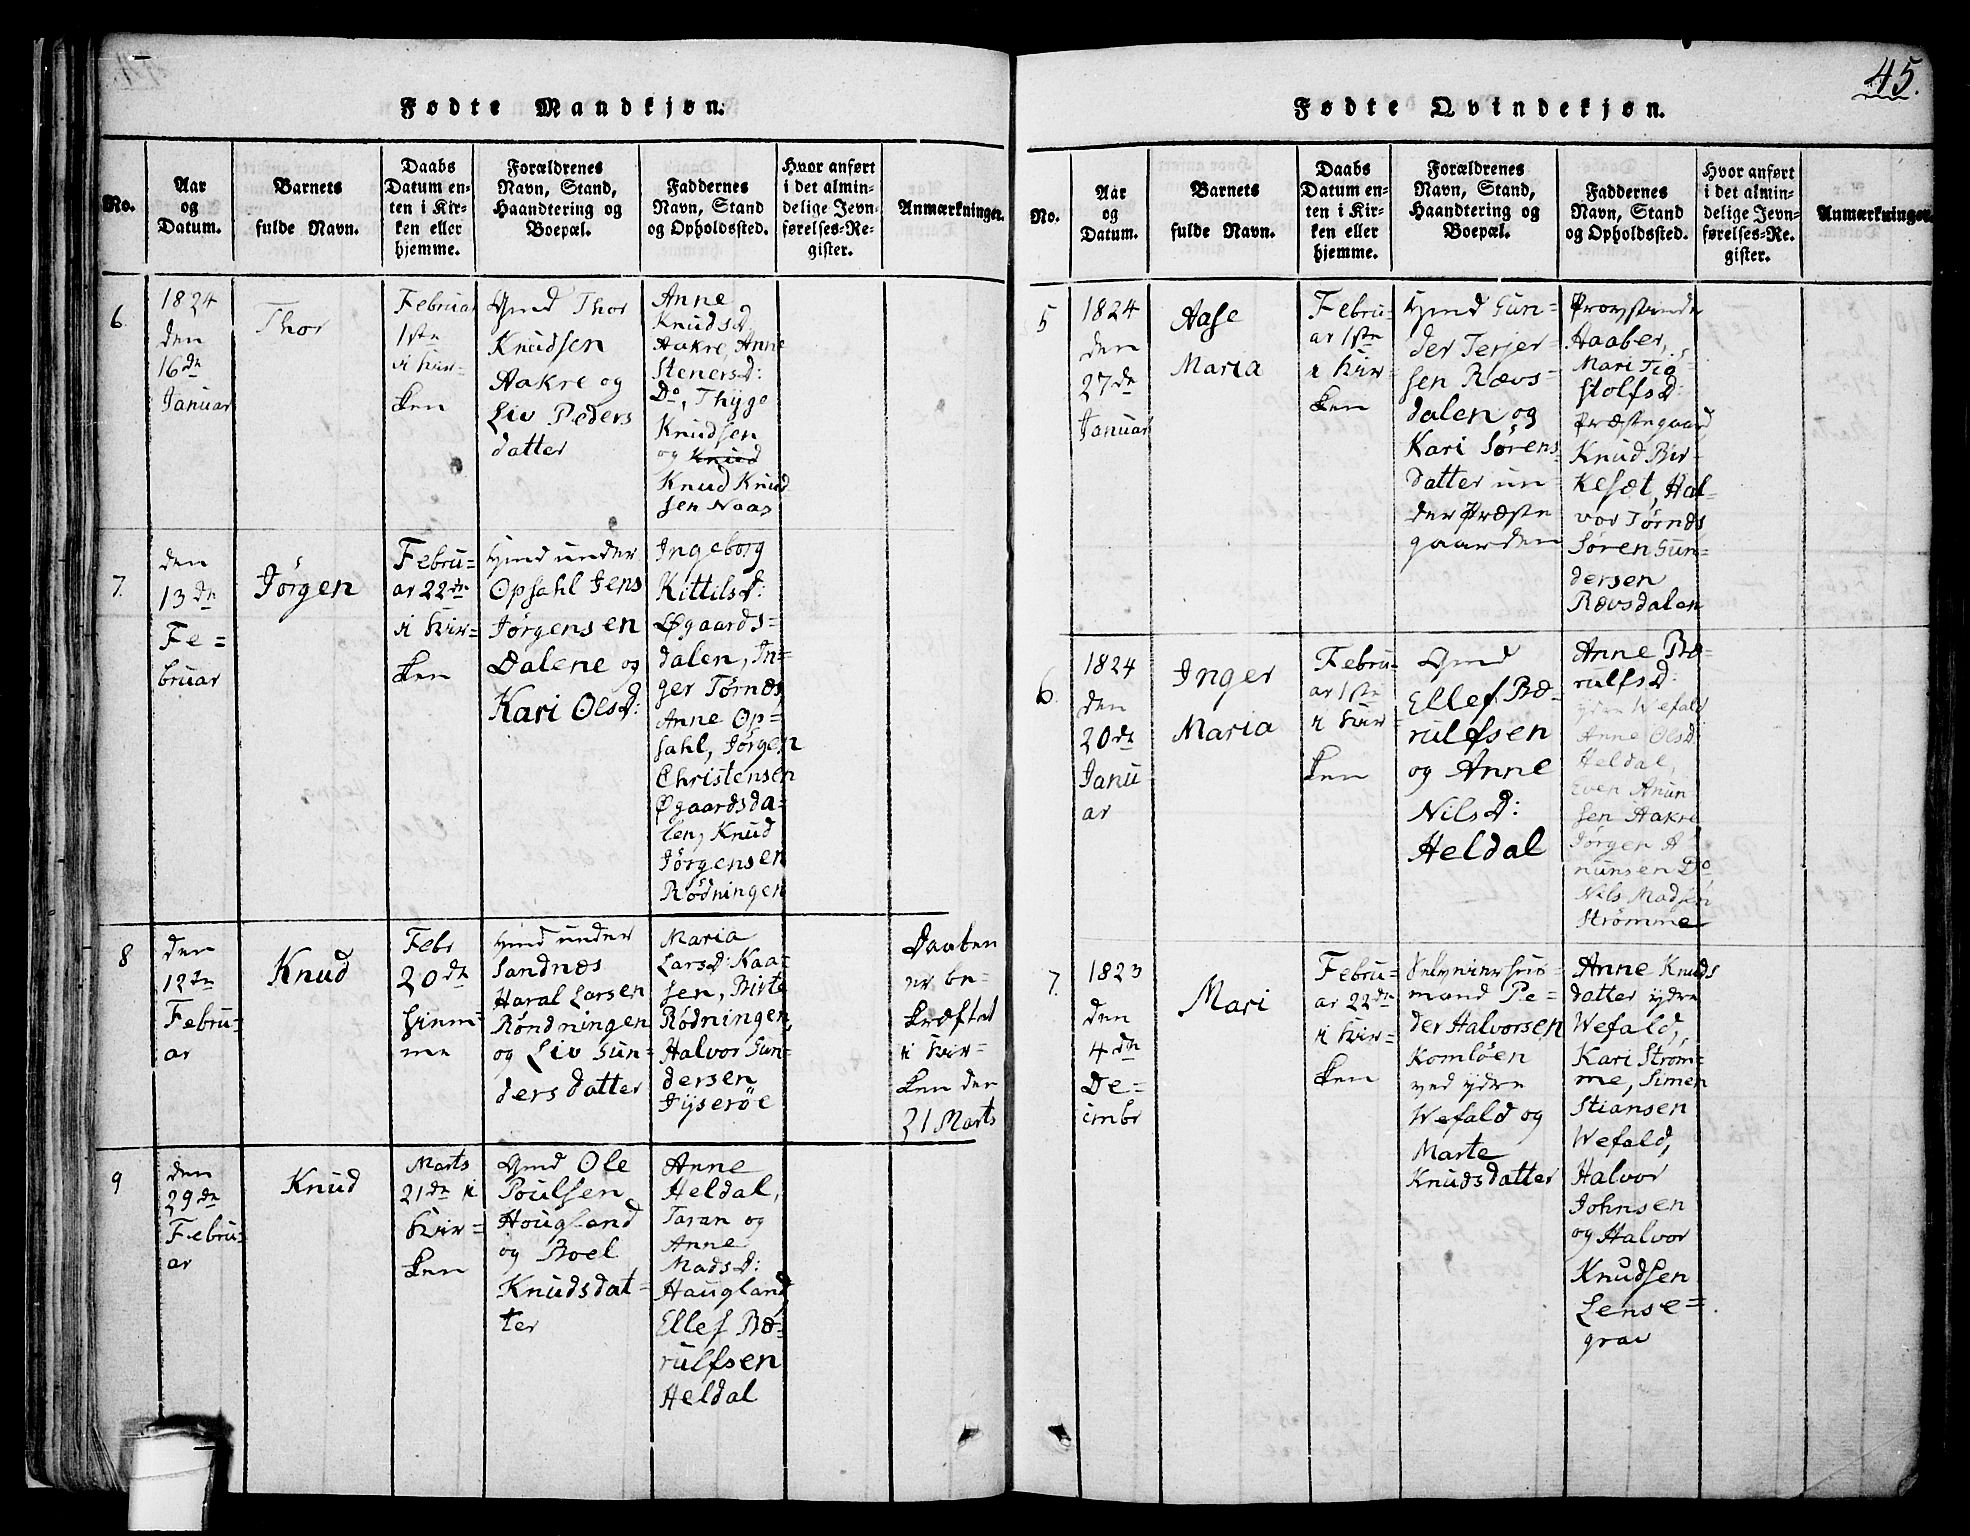 45.
Fødte Mandkjøn.
No.
Aar
og
Datum.
Barnets
fulde Navn.
Daabs
Datum en-
ten i Kir-
ken eller
hjemme.
Forældrenes
Navn, Stand,
Haandtering og
Boepæl.
Faddernes
Navn, Stand
og Opholdssted.
Hvor anført
i det almin-
delige Jevn-
førelses-Re-
gister.
Anmærkninger.
6.
1824
den
16de
Januar
Thor
Februar
1ste
i Kir-
ken
Gmd Thor
Knudsen
Aakre og
Liv Peders
datter
Anne
Knudsd.
Aakre, Anne
Stenersd:
Do, Thyge
Knudsen
og Knud
Knud Knud
sen Naas
7.
den
13de
Fe-
bruar
Jørgen
Febru-
ar 22de
i Kir-
ken
Hmd under
Opsahl Jens
Jørgensen
Dalene og
Kari Olsd:
Ingeborg
Kittilsd:
Øgaards-
dalen, In-
ger Tørnes,
Anne Op-
sahl, Jørgen
Christensen
Øgaardsda-
len, Knud
Jørgensen
Rødningen
8
den
12te
Febru-
ar
Knud
Febr
20de
hjem-
me
Hmd under
Sandnæs
Haral Larsen
Røndningen
og Liv Gun-
ders datter
Maria
Larsd: Kaa-
sen, Birte
Rødningen,
Halvor Gun-
dersen
Jyserøe
Daaben
er be-
kræftet
i Kir-
ken den
21 Marts
9
den
29de
Febru-
ar
Knud
Marts
21de i
Kir-
ken
Gmd Ole
Poulsen
Hougland
og Boel
Knudsdat-
ter
Anne
Heldal,
Taran og
Anne
Madsd:
Haugland
Ellef Bæ-
rulfsen
Heldal
Fødte Qvindekjøn.
No.
Aar
og
Datum.
Barnets
fulde Navn.
Daabs
Datum en-
ten i Kir-
ken eller
hjemme.
Forældrenes
Navn, Stand,
Haandtering og
Boepæl.
Faddernes
Navn, Stand
og Opholdsted.
Hvor anført
i det almin-
delige Jevn-
førelses-Re-
gister.
Anmærkninger.
5
1824
den
27de
Januar
Aase
Maria
Febru-
ar 1ste
i Kir-
ken
Hmd Gun-
der Terjer-
sen Rævs-
dalen og
Kari Sørens-
datter un-
der Præste
gaarden
Provstinde
Aaaber,
Mari Tis-
stolfsd:
Præstegaard
Knud Bir-
kesæt, Hal-
vor Tørnes
Søren Gun-
dersen
Rævsdalen
6
1824
den
20de
Janu
ar
Inger
Maria
Febru-
ar 1ste
i Kir-
ken
Gmd
Ellef Bæ-
rulfsen
og Anne
Nilsd:
Heldal
Anne Bæ-
rulfsd:
ydre Wefald
Anne Olsd:
Heldal,
Even Anun
sen Aakre
Jørgen A
nunsen Do
Nils Madsen
Strømme
7.
1823
den
4de
De-
cmbr
Mari
Febru-
ar 22de
i Kir-
ken
mand Pe-
der Halvorsen
Komløen
ved ydre
Wefald og
Marte
Knudsdatter
Anne Knuds
datter ydre
Wefald,
Kari Strøm-
me, Simen
Stiansen
Wefald,
Halvor
Johnsen
og Halvor
Knudsen
Lense-
grav